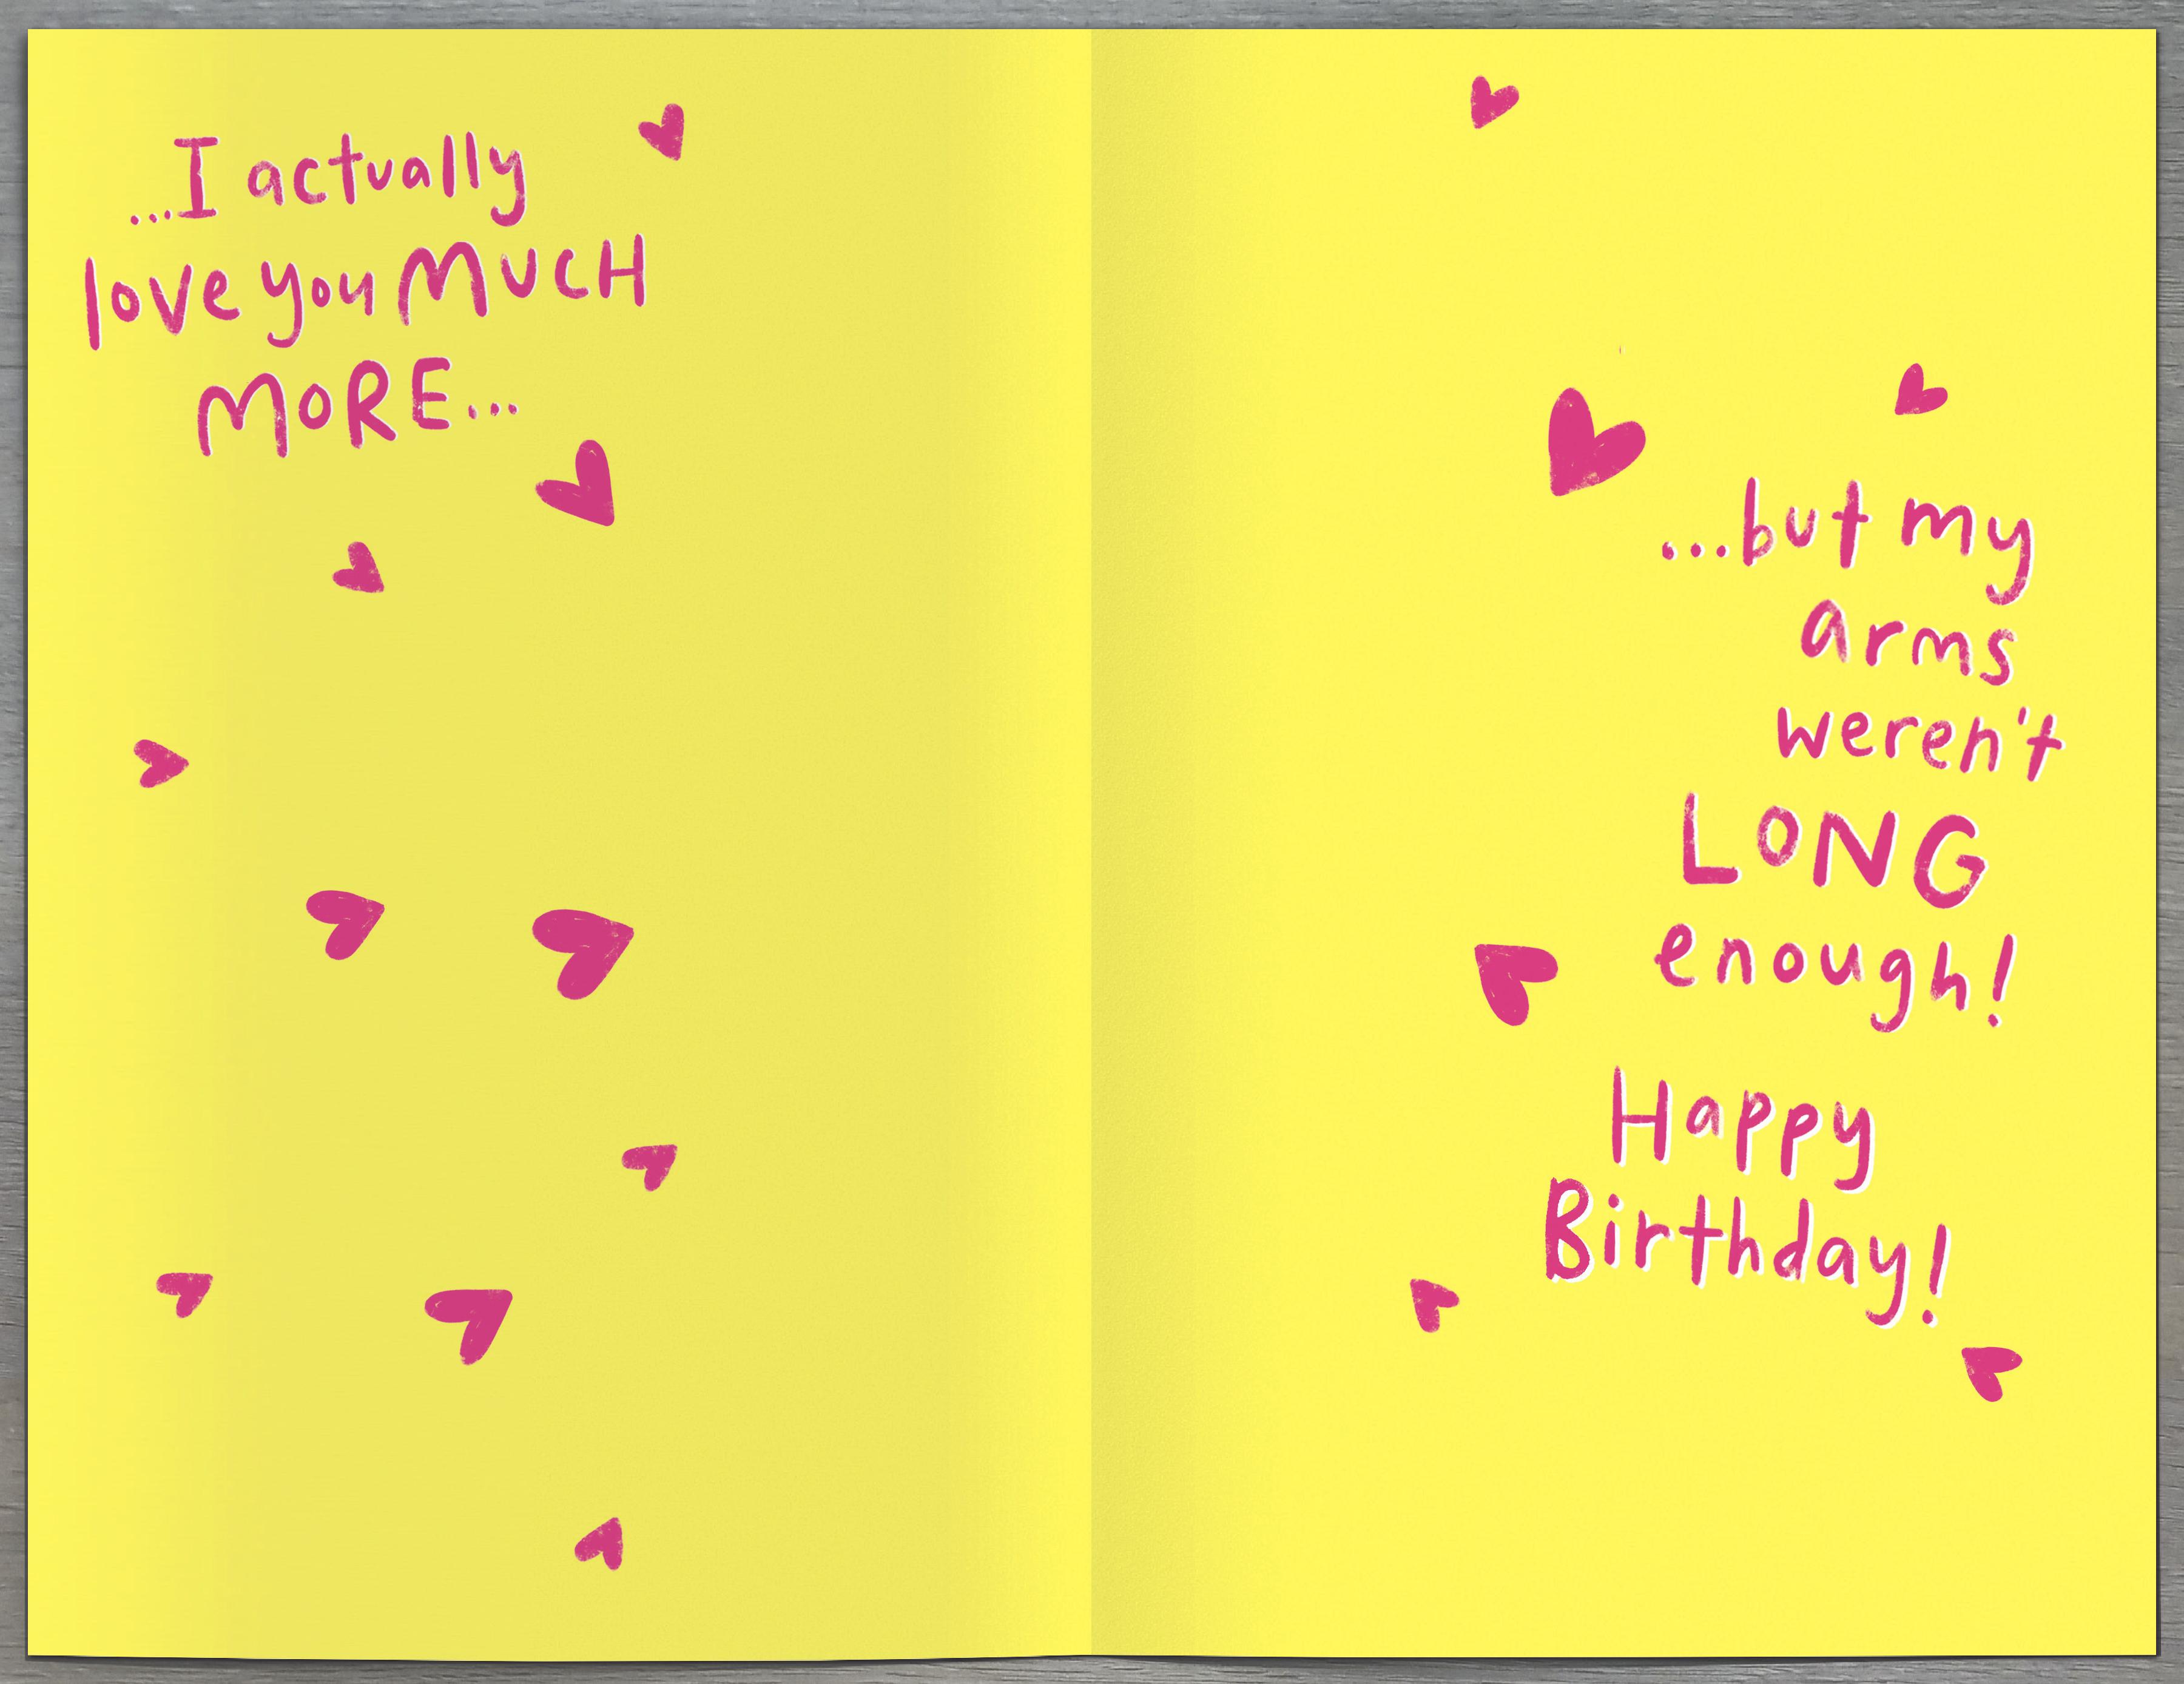 ...I actually
love you MUCH
MORE...
...but my
arms
weren't
LONG
enough!
Happy
Birthday!